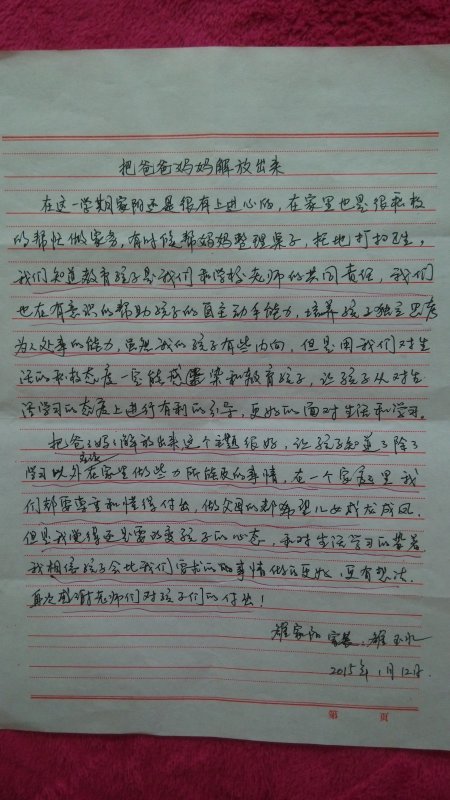 把爸爸妈妈解放出来
在这一学期家阳还是很有上进心的，在家里也是很积极
的帮忙做家务，有时候帮妈妈整理桌子，拖地打扫卫生，
我们知道教育孩子是我们和学校老师的共同责任，我们
也在有意识的帮助孩子的自主动手能力，培养孩子独立思考
为人处事的能力，虽然我的孩子有些内向，但是用我们对生
活的积极态度一定能感染和教育孩子，让孩子从对生
活学习的态度上进行有利的引导，更好的面对生活和学习。
把爸爸妈妈解放出来这个主题很好，让孩子知道了除了
学习以外应该在家里做些力所能及的事情，在一个家庭里我
们都需要尊重和懂得付出，做父母的都希望儿女成龙成凤，
但是我觉得还是需要孩子的心态，和对生活学习的
我相信孩子会比我们要求的事情做的更好，更有想法，
再次感谢老师们对孩子们的付出！
家阳 家长：
2015年1月12日
第 页